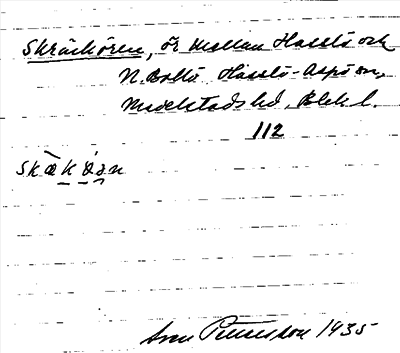 Skräckören, ör mellan Hasslö och
N. Boltö Hasslö-Aspö sn,
Medelstads hd. Blek l.
112
Sven Petersson 1935